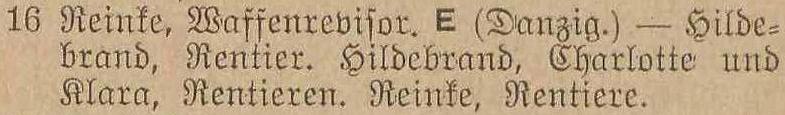 16 Reinke, Waffenrevisor. E (Danzig.) — Hilde-
brand, Rentier. Hildebrand, Charlotte und
Klara, Rentieren. Reinke, Rentiere.